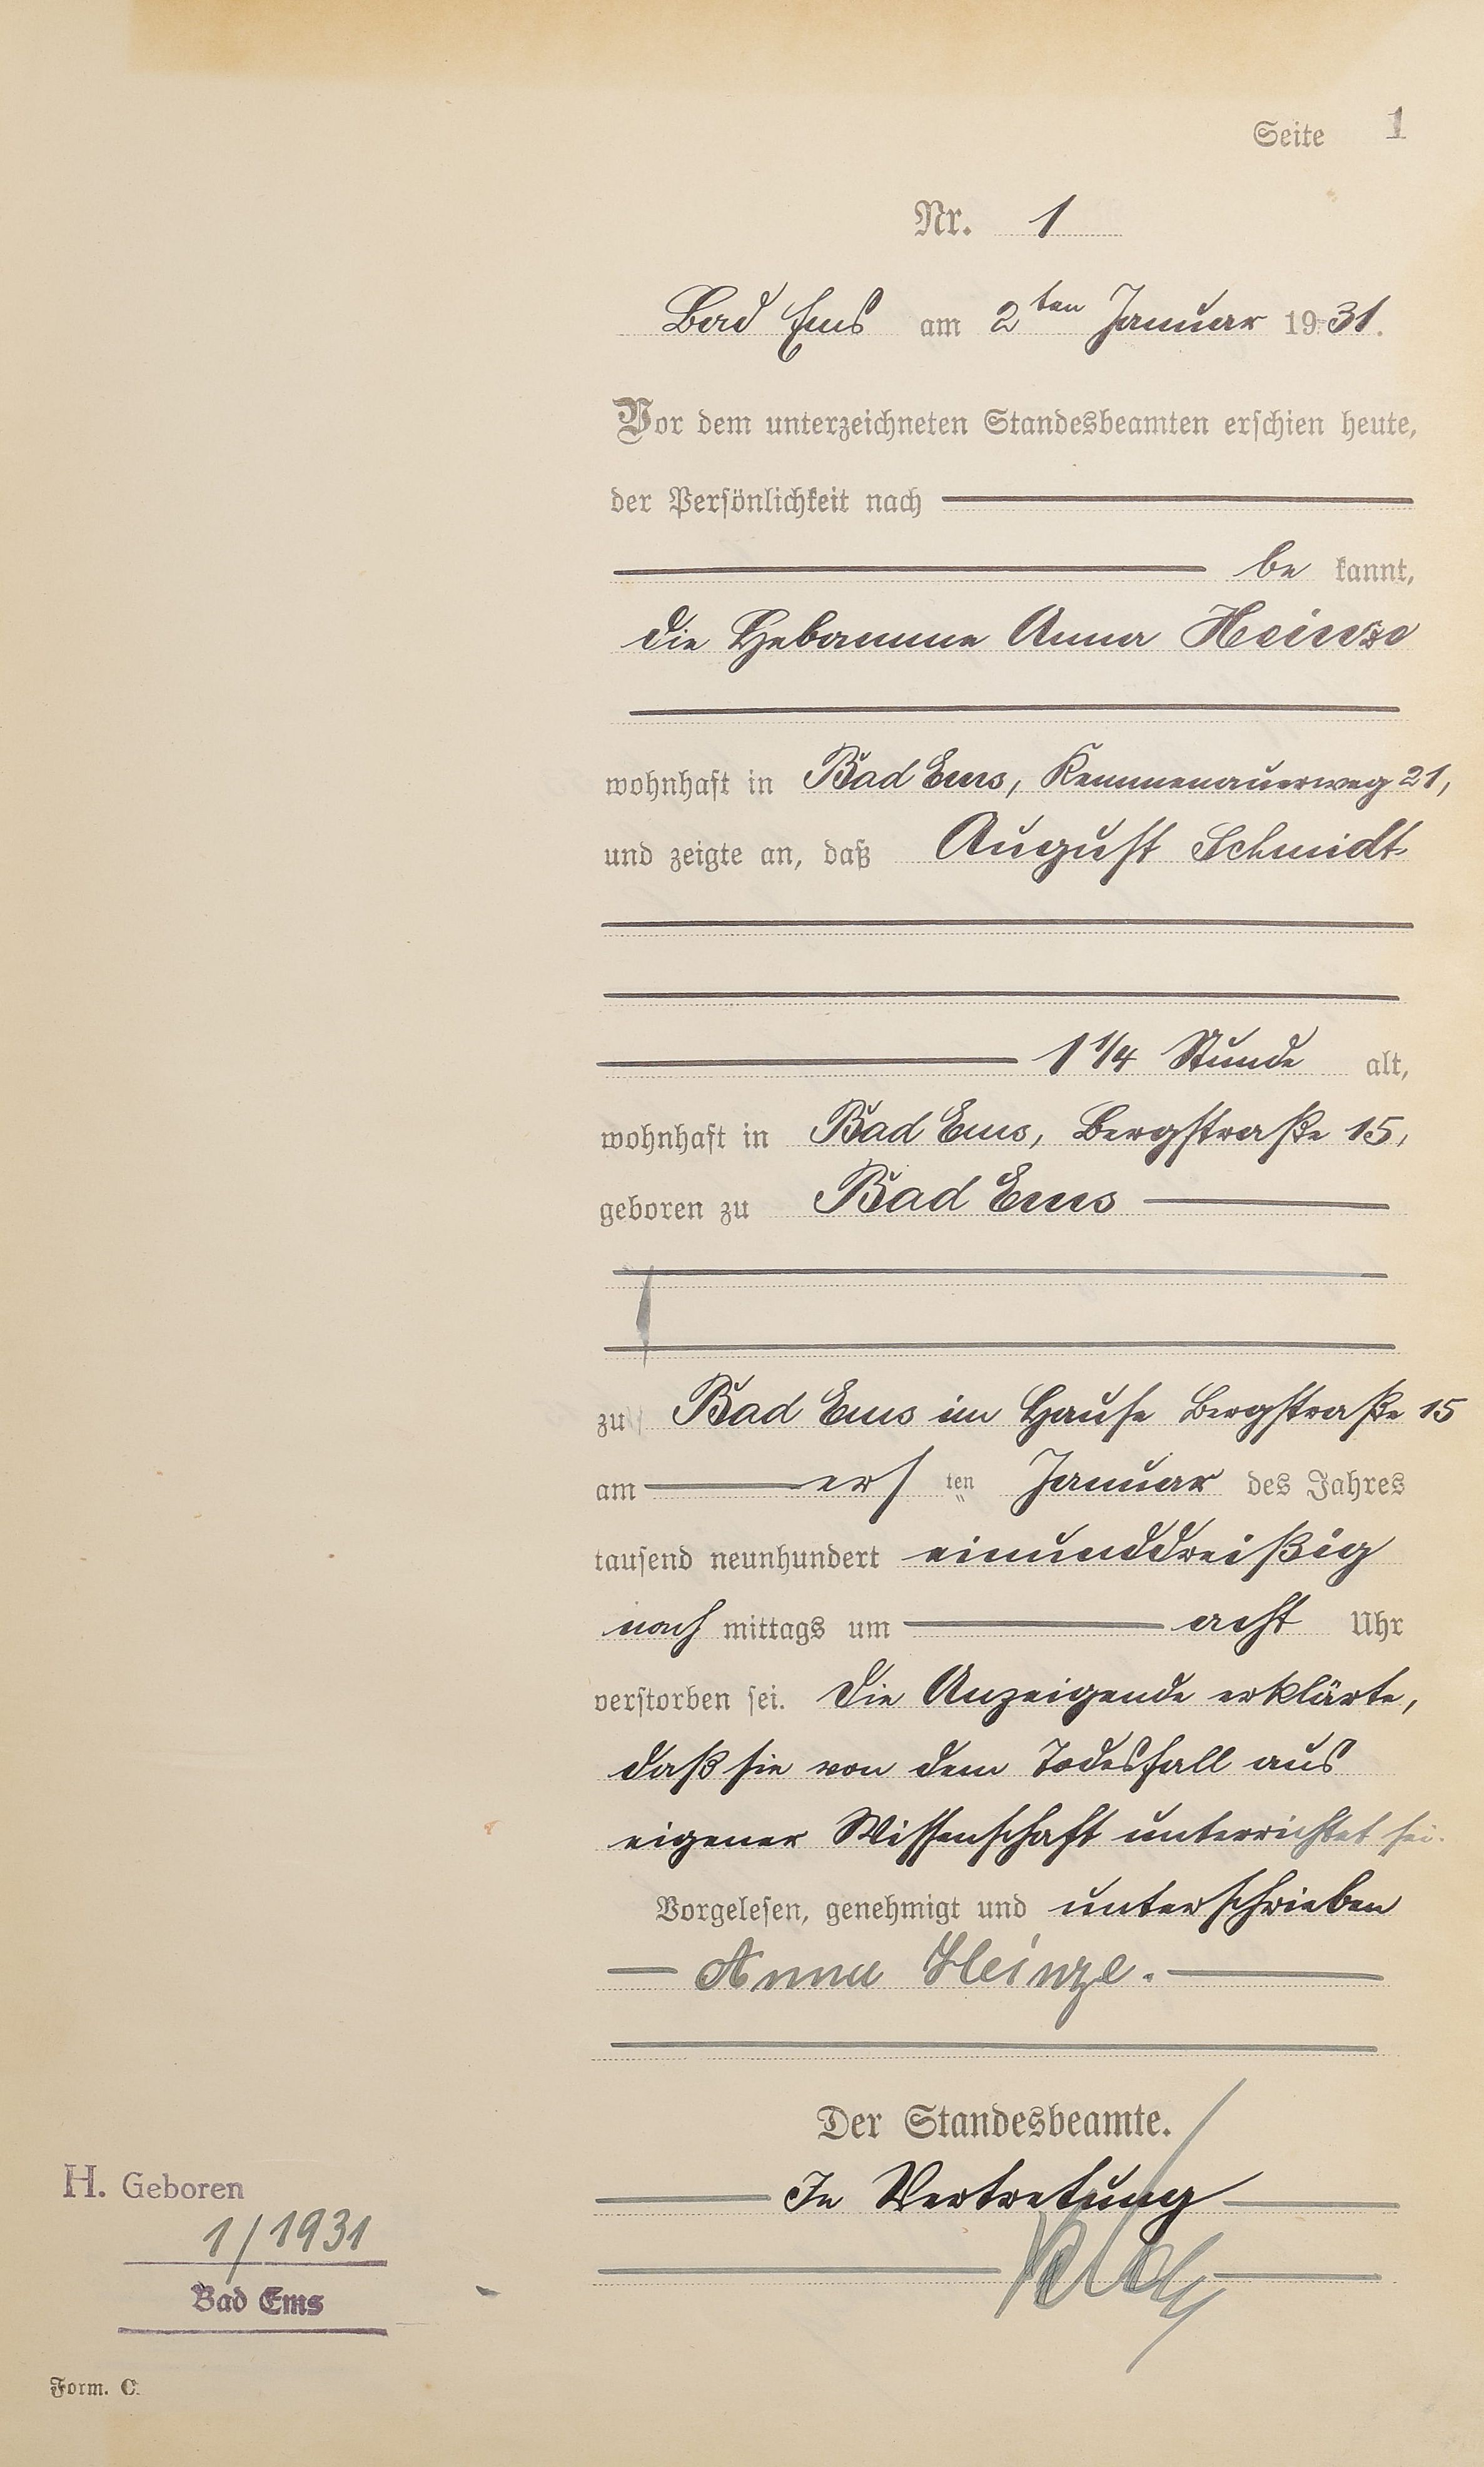 Seite 1
Nr. 1
Bad Ems am 2ten Januar 1931.
Vor dem unterzeichneten Standesbeamten erschien heute,
der Persönlichkeit nach
be kannt,
die Hebamme Anna Heinze
wohnhaft in Bad Ems, Kemmenauerweg 21,
und zeigte an, daß August Schmidt
1 1/4 Stunde alt,
wohnhaft in Bad Ems, Bergstraße 15,
geboren zu Bad Ems
zu Bad Ems im Hause Bergstraße 15
am ersten Januar des Jahres
tausend neunhundert einunddreißig
nach mittags um acht Uhr
verstorben sei. Die Anzeigende erklärte,
daß sie von dem Todesfall aus
eigener Wissenschaft unterrichtet sei.
Vorgelesen, genehmigt und unterschrieben
Anna Heinze.
Der Standesbeamte.
In Vertretung
H. Geboren
1/1931
Bad Ems
Form. C.